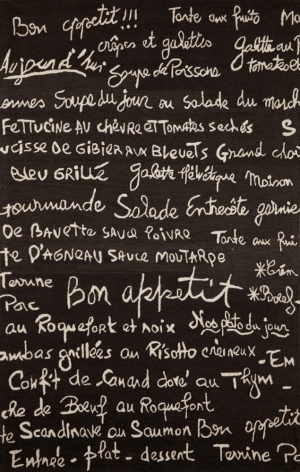 Bon appetit!!! Tarte aux fruits
crêpes et galettes Galette au
Aujourd'hui Soupe de Poissons tomates et
ennes Soupe du jour ou salade du march
Fettucine au chèvre et tomates sechés S
ucisse de gibier aux Bleuets Grand choi
Bleu Grillé Galette Helvétique Maison
gourmande Salade Entrecôte garnie
De Bavette sauce poivre Tarte aux frui
te D'Agneau sauce moutarde
Terrine *Crèm
Porc Bon appetit *Boeuf
au Roquefort et noix Nos plats du jour
ambas grillées au Risotto crémeux - Em
Confit de Canard doré au Thym -
che de Bœuf au Roquefort
te Scandinave au Saumon Bon appetit
Entrée - plat - dessent Terrine Pa